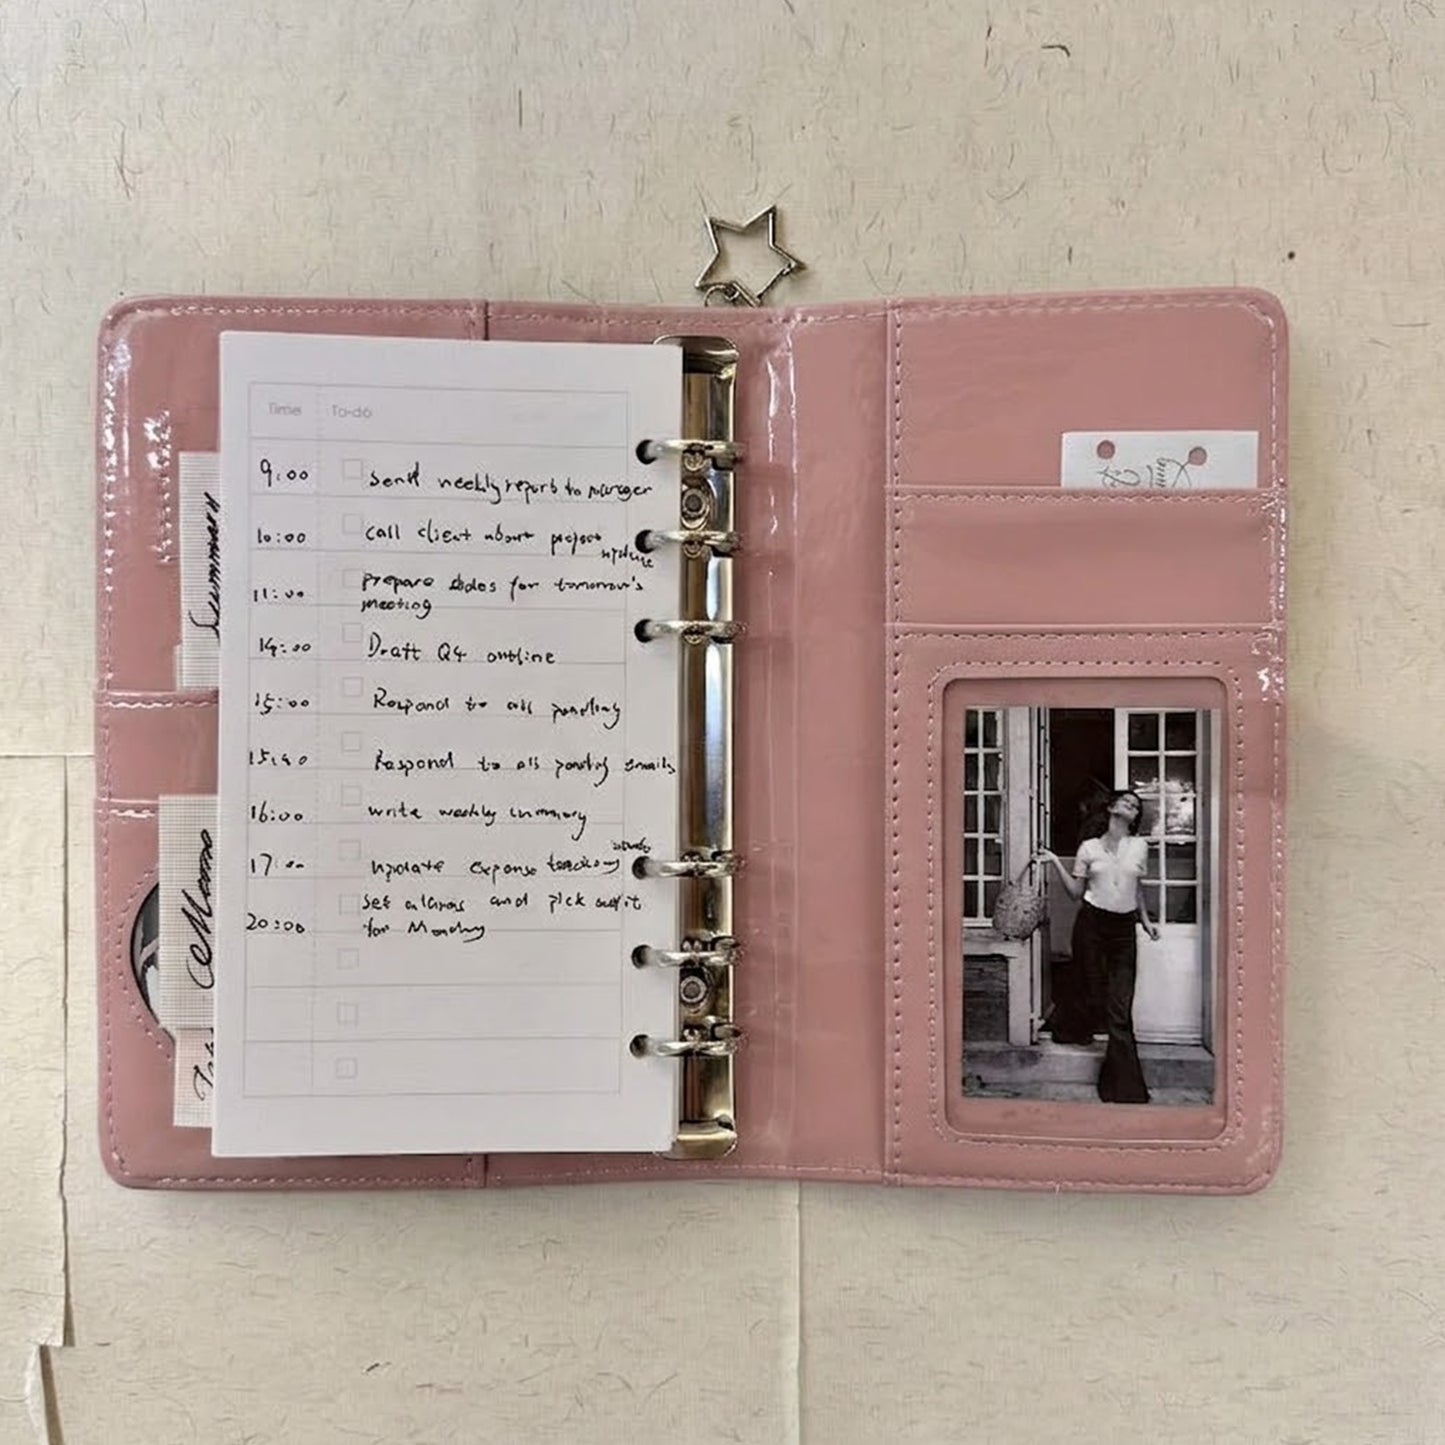 Time To-do
9:00 send weekly report to manager
10:00 call client about project
update
11:00 prepare slides for tomorrow's
meeting
14:00 Draft Q4 outline
15:00 Respond to all pending
15:40 Respond to all pending emails
16:00 write weekly summary
17:00 update expense tracking
20:00 set alarms and pick outfit
for Monday
Summary
Memo